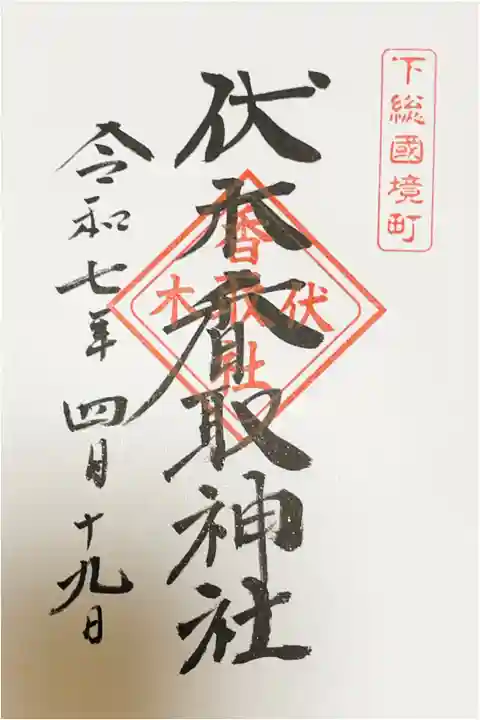 下総國境町
伏木香取神社
伏木
香取社
令和七年 四月十九日